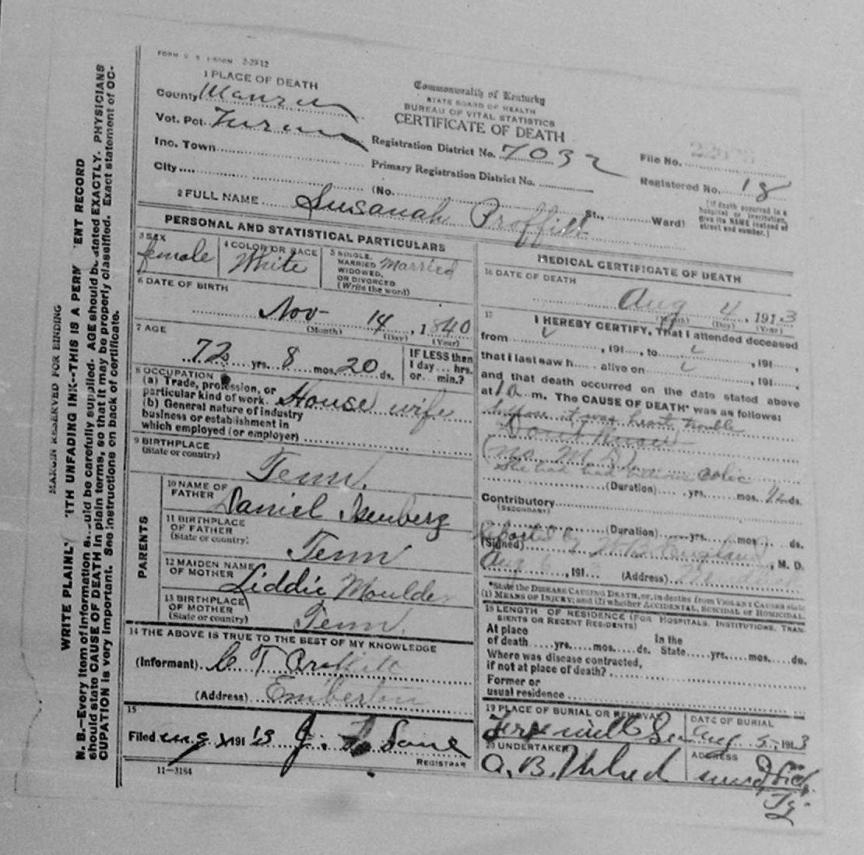 FORM V. S. 2-2912
1 PLACE OF DEATH
County Monroe
Vot. Pct.
Inc. Town
City
Commonwealth of Kentucky
STATE BOARD OF HEALTH
BUREAU OF VITAL STATISTICS
CERTIFICATE OF DEATH
Registration District No. 7032
Primary Registration District No.
File No.
Registered No. 18
(No. St., Ward)
[If death occurred in a hospital or institution, give its NAME instead of street and number.]
2 FULL NAME Susanah Proffitt
PERSONAL AND STATISTICAL PARTICULARS
3 SEX female
4 COLOR OR RACE White
5 SINGLE, MARRIED WIDOWED, OR DIVORCED (Write the word) Married
6 DATE OF BIRTH
Nov 14, 1840
(Month) (Day) (Year)
7 AGE
72 yrs. 8 mos. 20 ds.
IF LESS than 1 day... hrs. or... min.?
8 OCCUPATION
(a) Trade, profession, or particular kind of work House wife
(b) General nature of industry
business or establishment in
which employed (or employer)
9 BIRTHPLACE
(State or country) Tenn.
PARENTS
10 NAME OF FATHER Daniel Isenberg
11 BIRTHPLACE OF FATHER
(State or country) Tenn
12 MAIDEN NAME OF MOTHER Liddie Moulder
13 BIRTHPLACE OF MOTHER
(State or country) Tenn.
14 THE ABOVE IS TRUE TO THE BEST OF MY KNOWLEDGE
(Informant) C T
(Address) Emberton
15
Filed 1913 J. Lane
REGISTRAR
11-3184
MEDICAL CERTIFICATE OF DEATH
16 DATE OF DEATH
Aug 4, 1913
(Month) (Day) (Year)
17 I HEREBY CERTIFY, That I attended deceased
from , 191 , to , 191 ,
that I last saw h alive on , 191 ,
and that death occurred on the date stated above
at m. The CAUSE OF DEATH* was as follows:
it was heart trouble
(no M D)
She had colic
(Duration) yrs. mos. ds.
Contributory
(SECONDARY)
(Duration) yrs. mos. ds.
Reported by
(Signed) , M. D.
Aug 6, 191 (Address)
*State the DISEASE CAUSING DEATH, or, in deaths from VIOLENT CAUSES state
(1) MEANS OF INJURY; and (2) whether ACCIDENTAL, SUICIDAL or HOMICIDAL.
18 LENGTH OF RESIDENCE (FOR HOSPITALS, INSTITUTIONS, TRAN-
SIENTS OR RECENT RESIDENTS)
At place of death yrs. mos. ds. In the State yrs. mos. ds.
Where was disease contracted,
if not at place of death?
Former or
usual residence
19 PLACE OF BURIAL OR REMOVAL
DATE OF BURIAL
Aug 5, 1913
20 UNDERTAKER
A. B.
ADDRESS
Ky
MARGIN RESERVED FOR BINDING
WRITE PLAINLY WITH UNFADING INK—THIS IS A PERM ENT RECORD
N. B.—Every item of information should be carefully supplied. AGE should be stated EXACTLY. PHYSICIANS
should state CAUSE OF DEATH in plain terms, so that it may be properly classified. Exact statement of OC-
CUPATION is very important. See instructions on back of certificate.